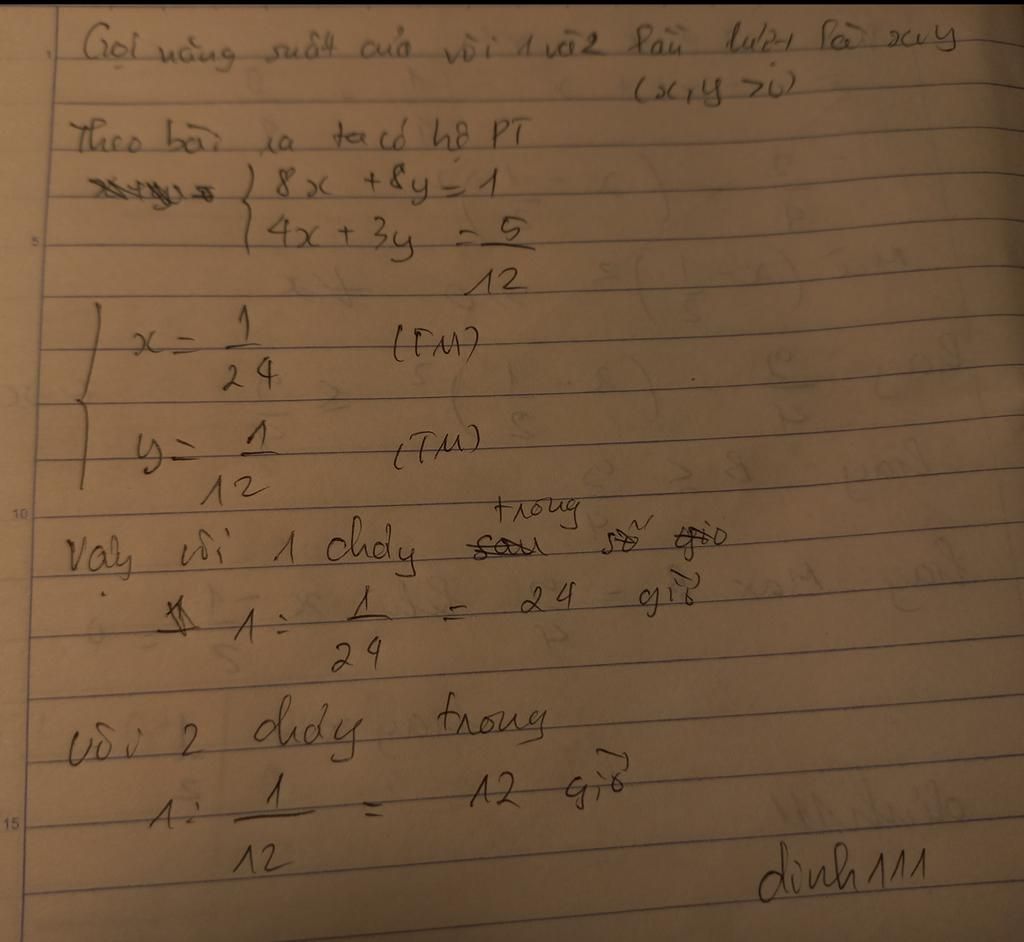 Gọi năng suất của vòi 1 và 2 lần lượt là x và y
(x, y > 0)
Theo bài ra ta có hệ PT
8x + 8y = 1
4x + 3y = 5/12
x = 1/24 (TM)
y = 1/12 (TM)
trong
Vậy vòi 1 chảy sau số giờ
1 : 1/24 = 24 giờ
vòi 2 chảy trong
1 : 1/12 = 12 giờ
dinh111
5
10
15